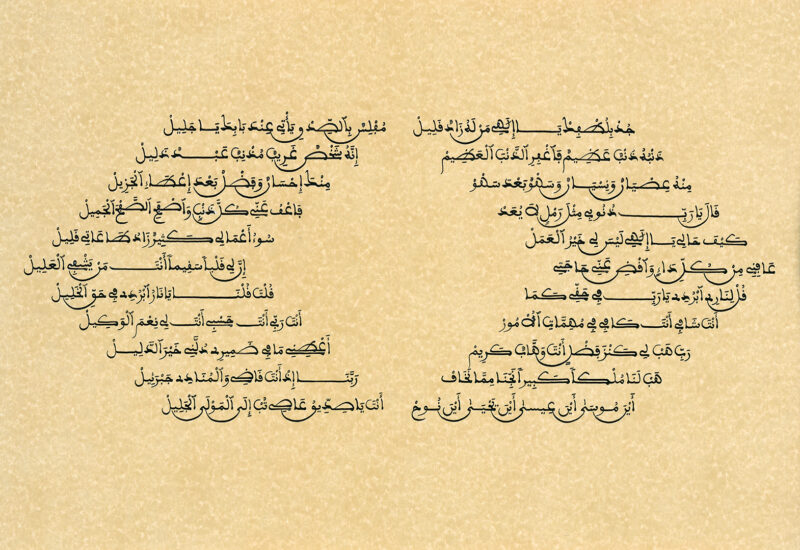 جُدْ بِلُطْفِكَ يَا إِلَهِي مَنْ لَهُ زَادٌ قَلِيلْ مُفْلِسٌ بِالصِّدْقِ يَأْتِي عِنْدَ بَابِكَ يَا جَلِيلْ
ذَنْبُهُ ذَنْبٌ عَظِيمٌ فَاغْفِرِ الذَّنْبَ الْعَظِيمْ إِنَّهُ شَخْصٌ غَرِيبٌ مُذْنِبٌ عَبْدٌ ذَلِيلْ
مِنْهُ عِصْيَانٌ وَنِسْيَانٌ وَسَهْوٌ بَعْدَ سَهْوٍ مِنْكَ إِحْسَانٌ وَفَضْلٌ بَعْدَ إِعْطَاءِ الْجَزِيلْ
قَالَ يَا رَبِّ ذُنُوبِي مِثْلَ رَمْلٍ لَا يُعَدْ فَاعْفُ عَنِّي كُلَّ ذَنْبٍ وَاصْفَحِ الصَّفْحَ الْجَمِيلْ
كَيْفَ حَالِي يَا إِلَهِي لَيْسَ لِي خَيْرُ الْعَمَلْ سُوءُ أَعْمَالِي كَثِيرٌ زَادُ طَاعَاتِي قَلِيلْ
عَافِنِي مِنْ كُلِّ دَاءٍ وَاقْضِ عَنِّي حَاجَتِي إِنَّ لِي قَلْبًا سَقِيمًا أَنْتَ مَنْ يَشْفِي الْعَلِيلْ
قُلْ لِنَارِي ابْرُدِي يَا رَبِّ فِي حَقِّي كَمَا قُلْتَ قُلْنَا يَا نَارُ ابْرُدِي فِي حَقِ الْخَلِيلْ
أَنْتَ شَافِي أَنْتَ كَافِي فِي مُهِمَّاتِ الْأُمُورْ أَنْتَ رَبِّي أَنْتَ حَسْبِي أَنْتَ لِي نِعْمَ الْوَكِيلْ
رَبِّ هَبْ لِي كَنْزَ فَضْلٍ أَنْتَ وَهَّابٌ كَرِيمْ أَعْطِنِي مَا فِي ضَمِيرِي دُلَّنِي خَيْرَ الدَّلِيلْ
هَبْ لَنَا مُلْكًا كَبِيرًا نَجِّنَا مِمَّا نَخَافْ رَبَّنَا إِذْ أَنْتَ قَاضِي وَالْمُنَادِي جَبْرَئِيلْ
أَيْنَ مُوسَى أَيْنَ عِيسَى أَيْنَ يَحْيَى أَيْنَ نُوحْ أَنْتَ يَا صِدِّيقُ عَاصِي تُبْ إِلَى الْمَوْلَى الْجَلِيلْ